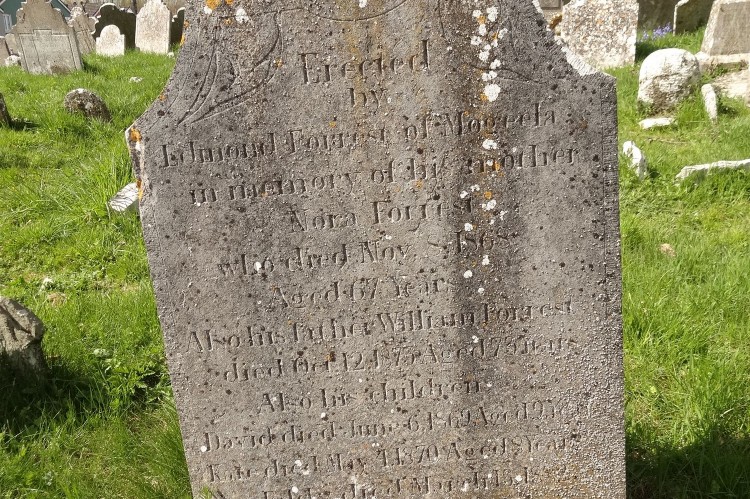 Erected
by
Edmond Forrest of Mogeela
in memory of his mother
Nora Forrest
who died Nov. 8, 1868
Aged 67 Years
Also his father William Forrest
died Oct 12. 1875 Aged 78 Years
Also his children
David died June 6. 1869 Aged 9 Years
Kate died May 4. 1870 Aged 8 Years
died March